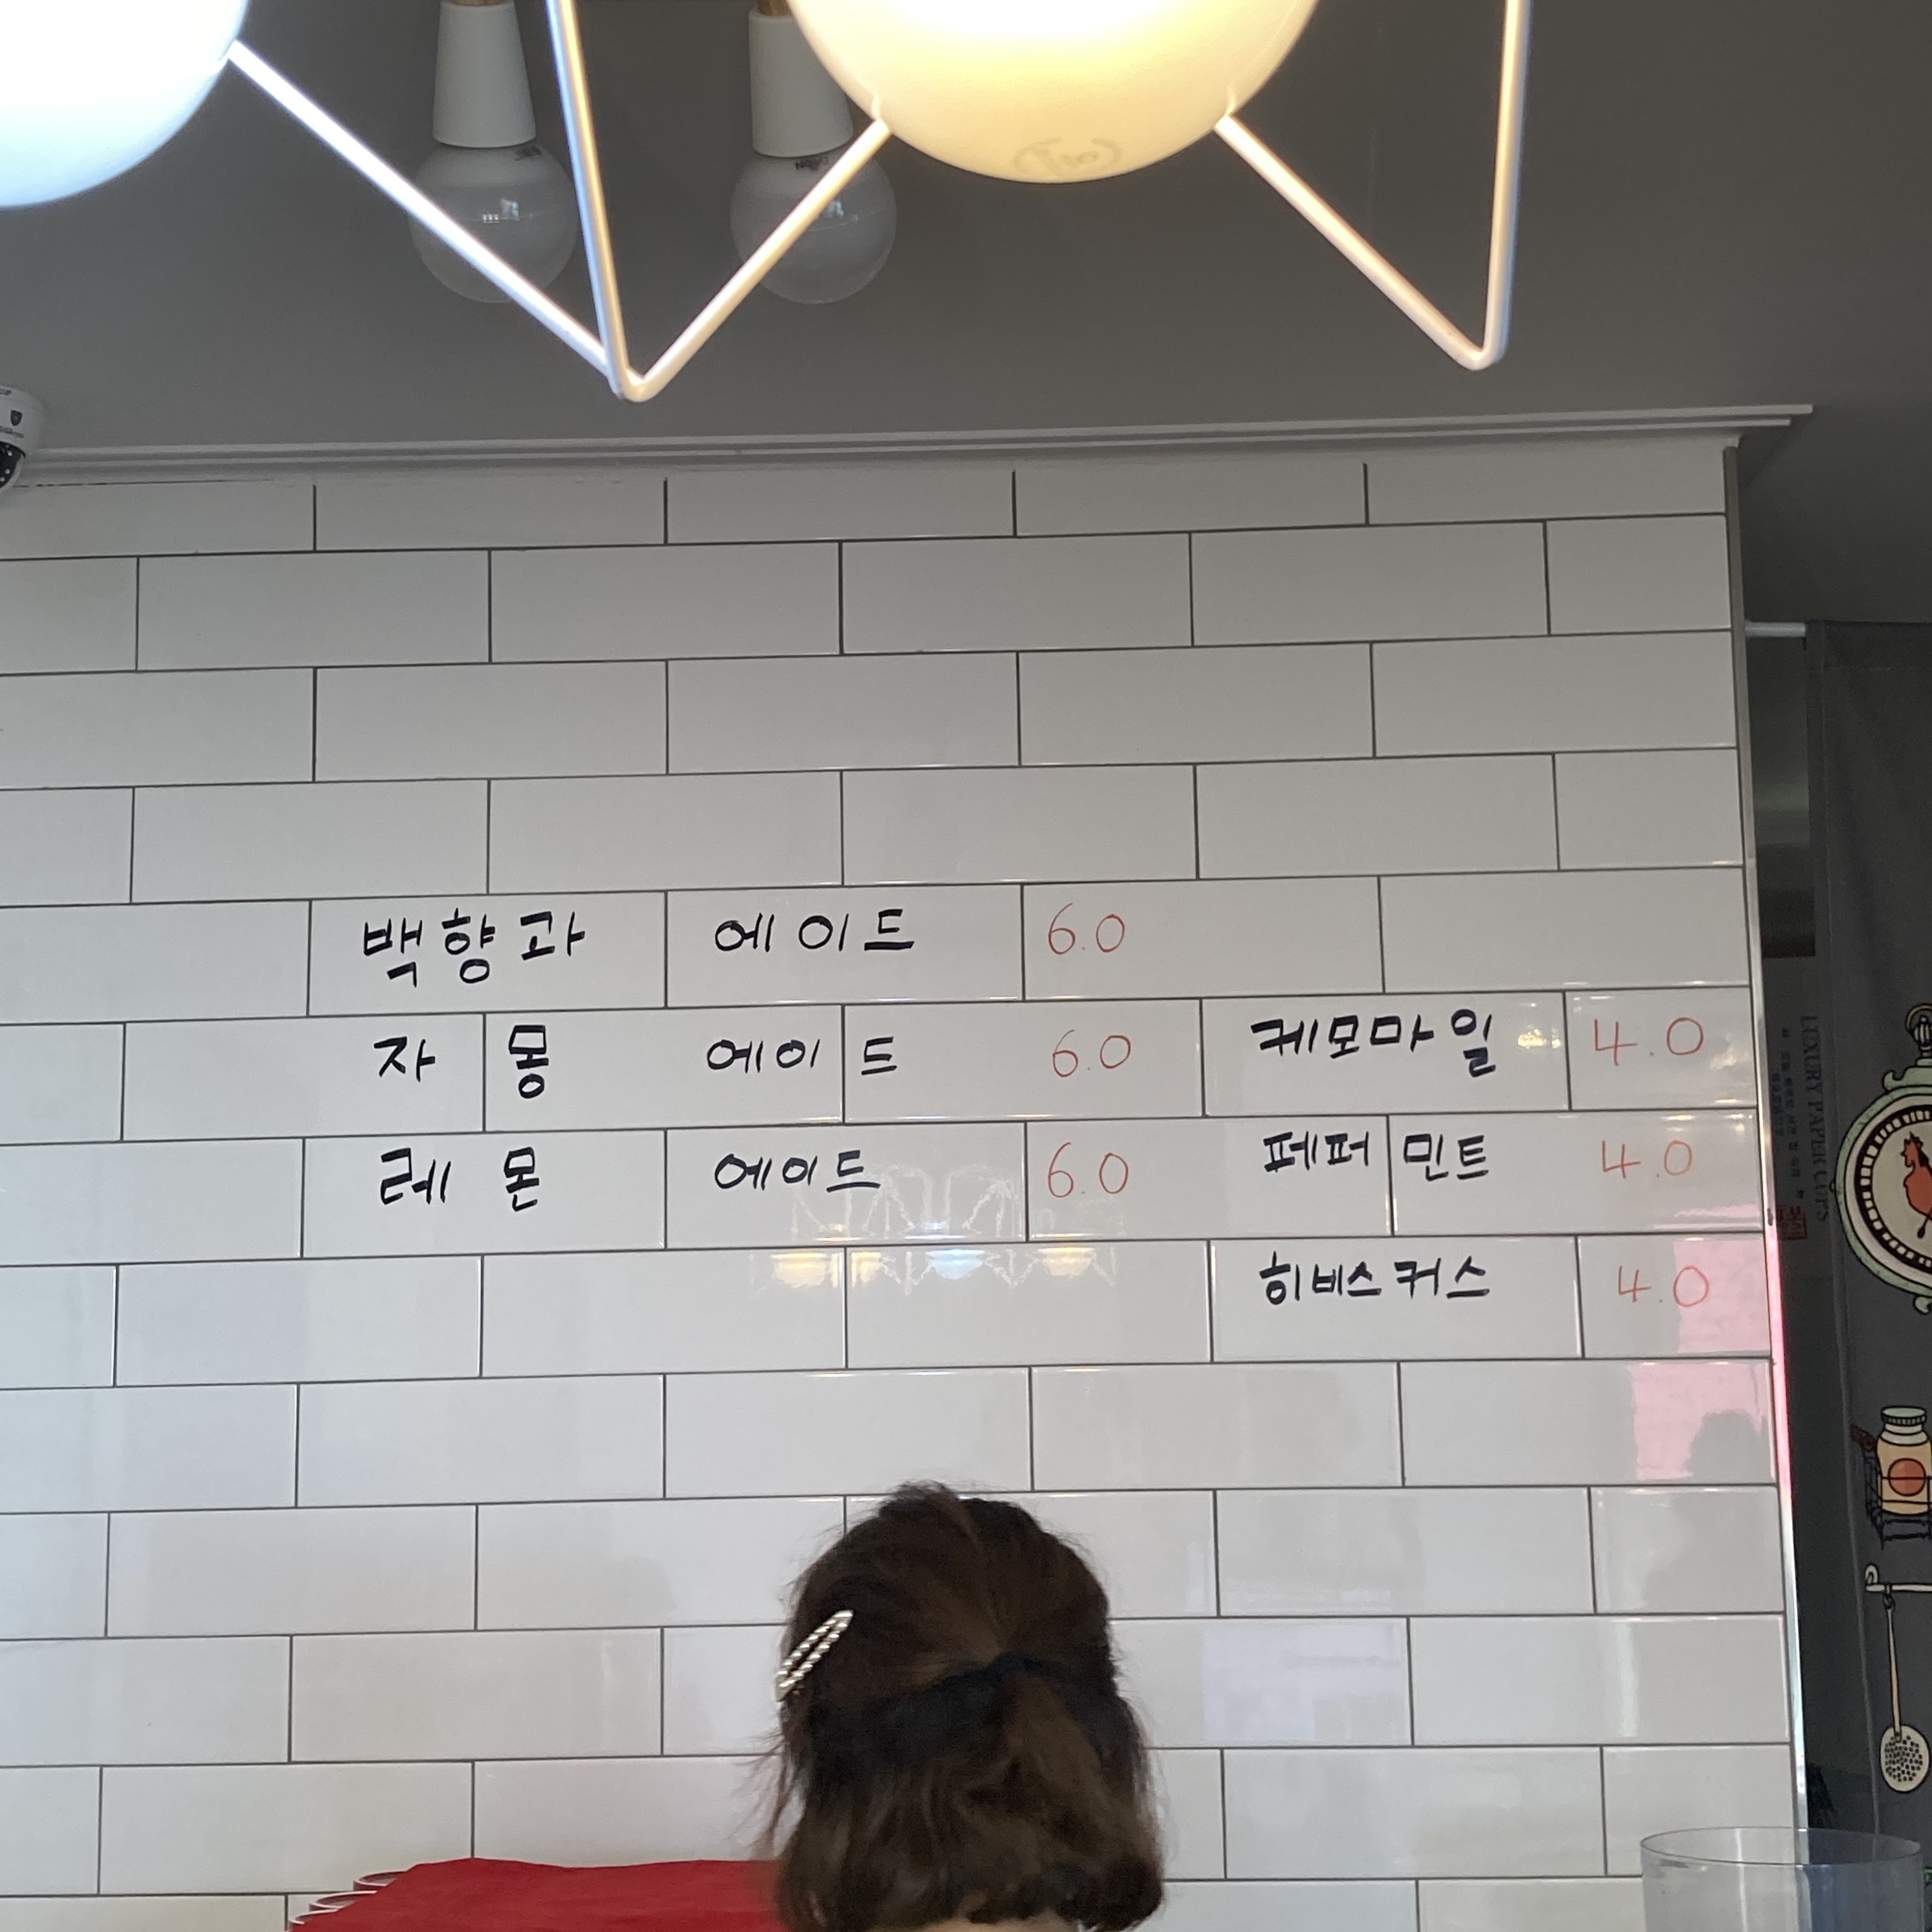 백향과 에이드 6.0
자몽 에이드 6.0
레몬 에이드 6.0
케모마일 4.0
페퍼민트 4.0
히비스커스 4.0
LUXURY PAPER CUPS